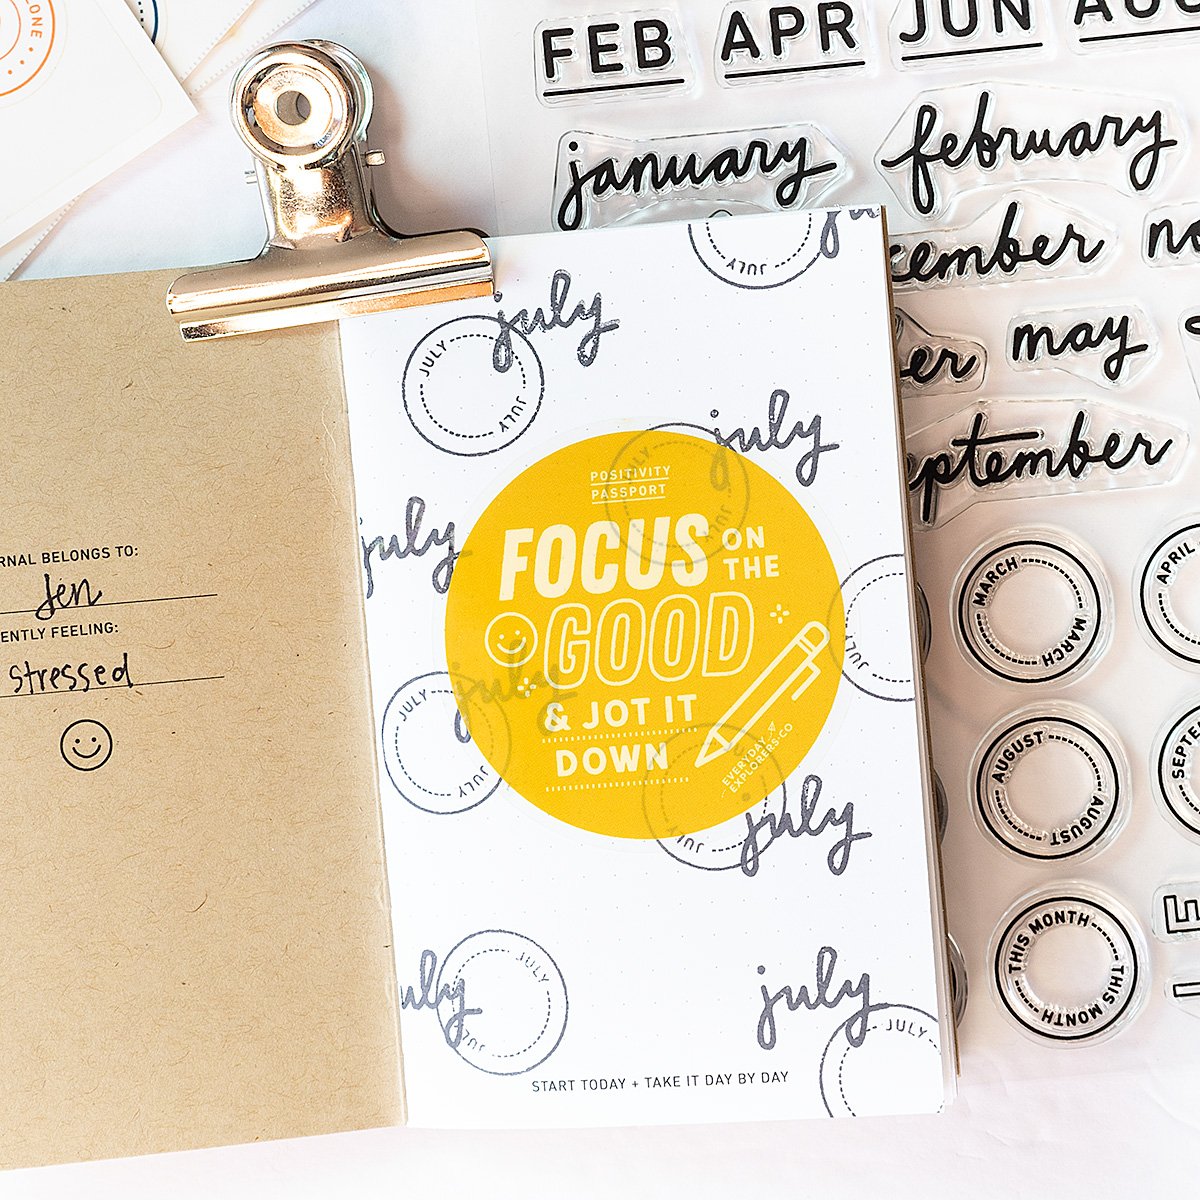 LONE •
FEB APR JUN AUG
january february
cember no
er may
eptember
MARCH MARCH
APRIL
AUGUST AUGUST
SEPTE
THIS MONTH THIS MONTH
RNAL BELONGS TO:
Jen
ENTLY FEELING:
stressed
JULY
july
JULY JULY
july
july
july
JULY
JULY
POSITIVITY
PASSPORT
FOCUS ON
THE
GOOD
& JOT IT
DOWN
EVERYDAY
EXPLORERS.CO
JULY
JULY
july
JULY
JULY
july
JULY
july
JULY
JUL
july
JULY
START TODAY + TAKE IT DAY BY DAY